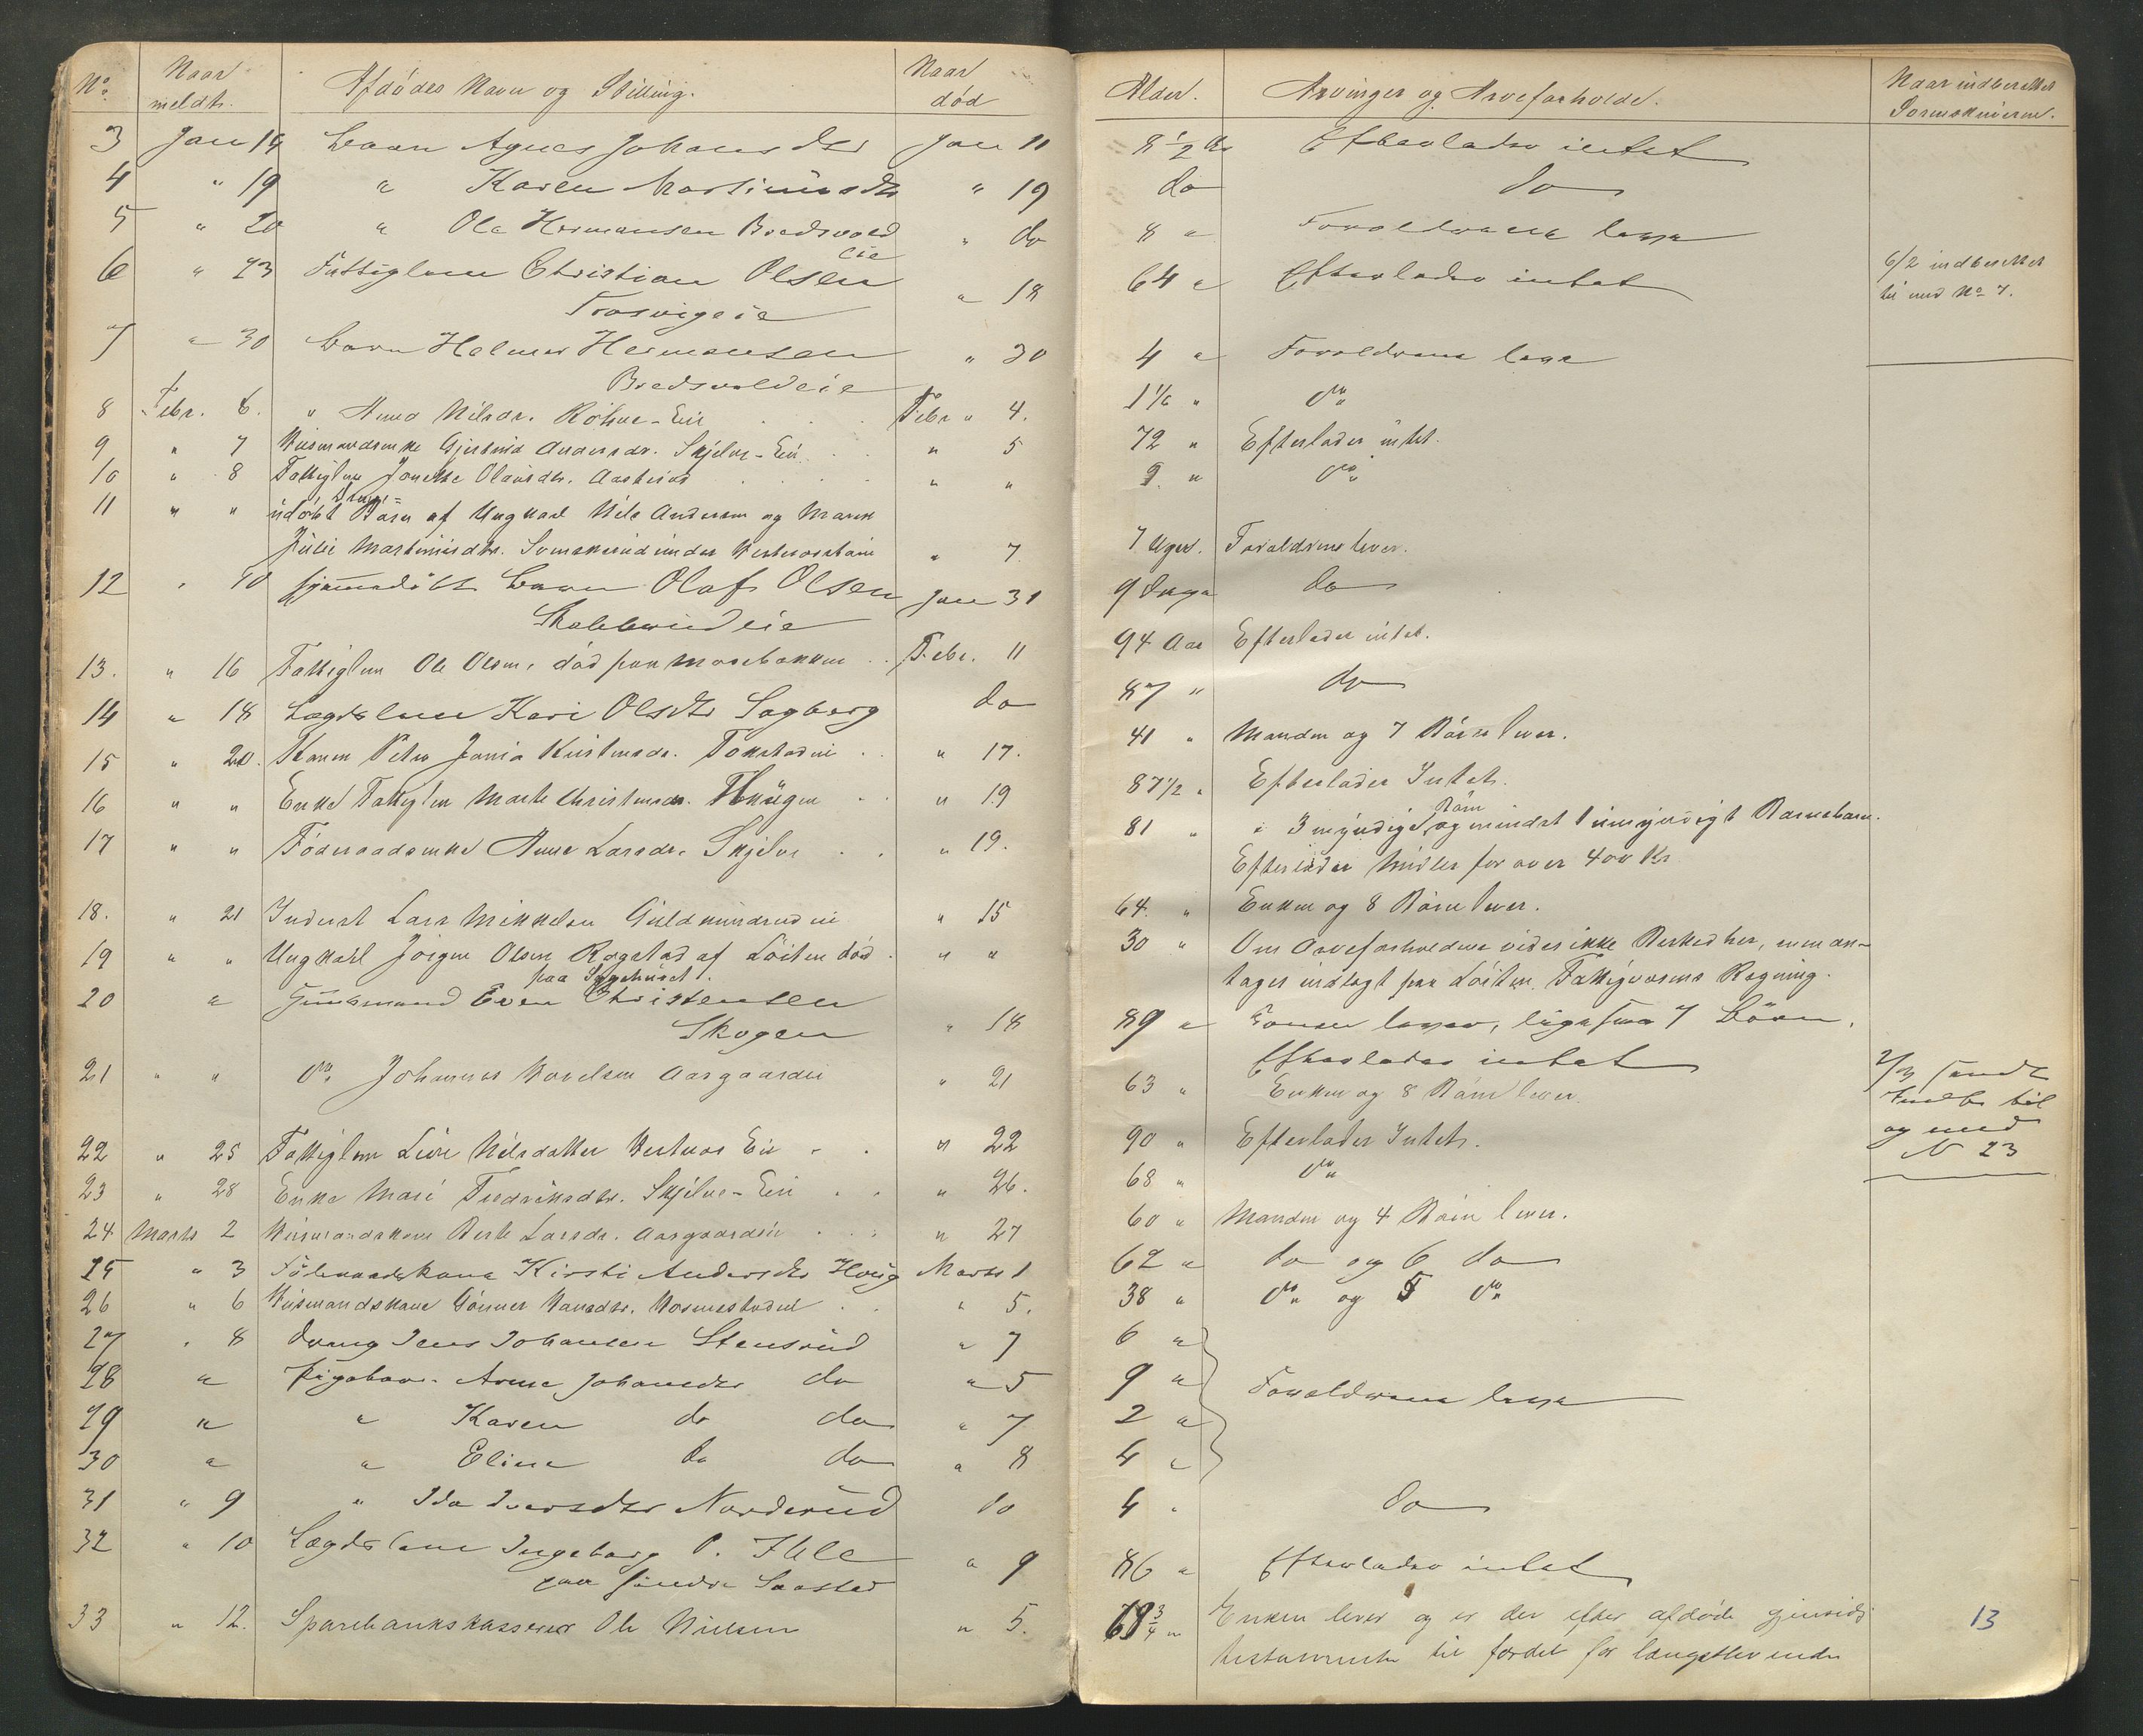 No. Naar meldt. Afdødes Navn og Stilling. Naar død
3 Jan 14 Barn Agnes Johansdtr Jan 11
4 " 19 " Karen Martinusdtr " 19
5 " 20 " Ole Hermansen Bredsvold " do
eie
6 " 23 Fattiglem Christian Olsen
Frosvigeie " 18
7 " 30 Barn Helmer Hermansen " 30
Bredsvoldeie
8 Febr. 6. " Anna Nilsdr. Eie Febr " 4.
9 " 7 Husmandsenke Andersdr. Skjelve-Eie " 5
10 " 8 Fattiglem Olausdr. " "
11 " " udøbt Barn af Ungkarl Nils Andersen og
Julie Martinusdtr. under " 7
12 " 10 hjemmedøbt Barn Olaf Olsen Jan 31
13. " 16 Fattiglem Ole Olsen, død paa Mosebakken Febr. 11
14 " 18 Lægdslem Kari Olsdtr Sagberg do
15 " 20. Petra " 17.
16 " " Enke Fattiglem Marte Christensdr. " 19
17 " " Føderaadsenke Anne Larsdr. Skjelve " 19.
18. " 21 Inderst Lars Mikkelsen Guldmundrudeie " 15
19 " " Ungkarl Jørgen Olsen Rogstad af Løiten død " "
paa Sygehuset.
20 " Even Christensen
Skogen " 18
21 " " do. Johannes Aasgaardeie " 21
22 " 25 Fattiglem Nilsdatter Eie " 22
23 " 28 Enke Mari Fredriksdtr. Skjelve-Eie " 26.
24. Marts 2 Husmandskone Berte Larsdr. Aasgaardeie " 27
25 " 3 Føderaadskone Kirsti Andersdtr Marts 1
26 " 6 Husmandskone Gunner Hansdtr. " 5.
27 " 8 Dreng Jens Johansen Stensrud " 7
28 " Pigebarn Anne Johansdtr do " 5
29 " " Karen do do " 7
30 " " Eline do do " 8
31 " 9 " Ida Iversdtr Norderud do
32 " 10 Lægdslem Ingeborg P. Ihle " 9
paa søndre Saastad
33 " 12. Sparebankskasserer Ole Nielsen " 5.
Alder. Arvinger og Arveforholde. Naar indberettet Sorenskriveren.
8 1/2 Aar Efterlader intet
do do
8 " Forældrene leve
64 " Efterlader intet 6/2 indberettet
til med No. 7.
4 " Forældrene leve
1 1/6 " do.
72 " Efterlader intet.
9. " do.
7 Uger. Forældrene lever.
9 Dage do
94 Aar Efterlader intet.
87 " do
41 " Manden og 7 Børn lever.
87 1/2 " Efterlader Intet.
81 " " 3 myndige Børn og mindst 1 umyndigt Barnebarn.
Efterlader Midler for over 400 Kr.
64. " Enken og 8 Børn lever.
30 " Om Arveforholdene vides ikke Besked her, men an-
tages indlagt paa Løiten Fattigvæsens Regning.
89 " Konen lever, ligesaa 7 Børn.
Efterlader intet
63 " Enken og 8 Børn lever. 2/3 sendt
Indb. til
og med
N 23
90 " Efterlader Intet.
68 " do.
60 " Manden og 4 Børn lever.
62 " do og 6 do
38 " do. og 5 do.
6 "
9 " Forældrene leve
2 "
4 "
4 " do
86 " Efterlader intet
3/4 " Enken lever og er der efter afdøde gjensidig
testamente til fordel for længstlevende
13